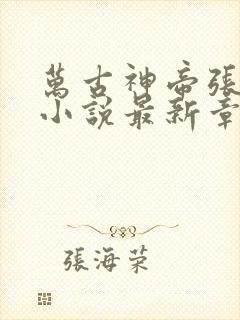 萬古神帝張
小說最新章
張海荣